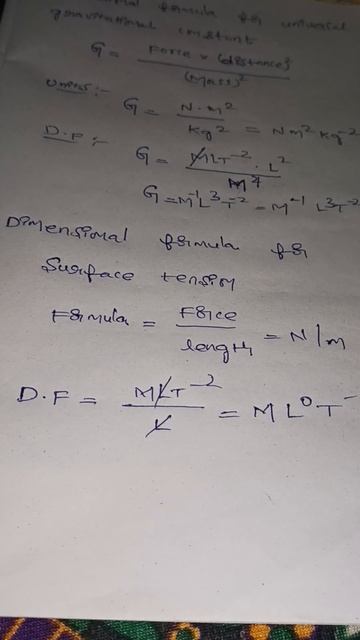 formula for universal
gravitational constant
G = Force × (distance)²
(Mass)²
Units:- G = N·m²
Kg² = Nm² Kg⁻²
D.F:- G = MLT⁻² · L²
M²
G = M⁻¹L³T⁻² = M⁻¹ L³T⁻²
Dimensional formula for
Surface tension
Formula = Force
length = N/m
D.F = MLT⁻²
L = ML⁰T⁻